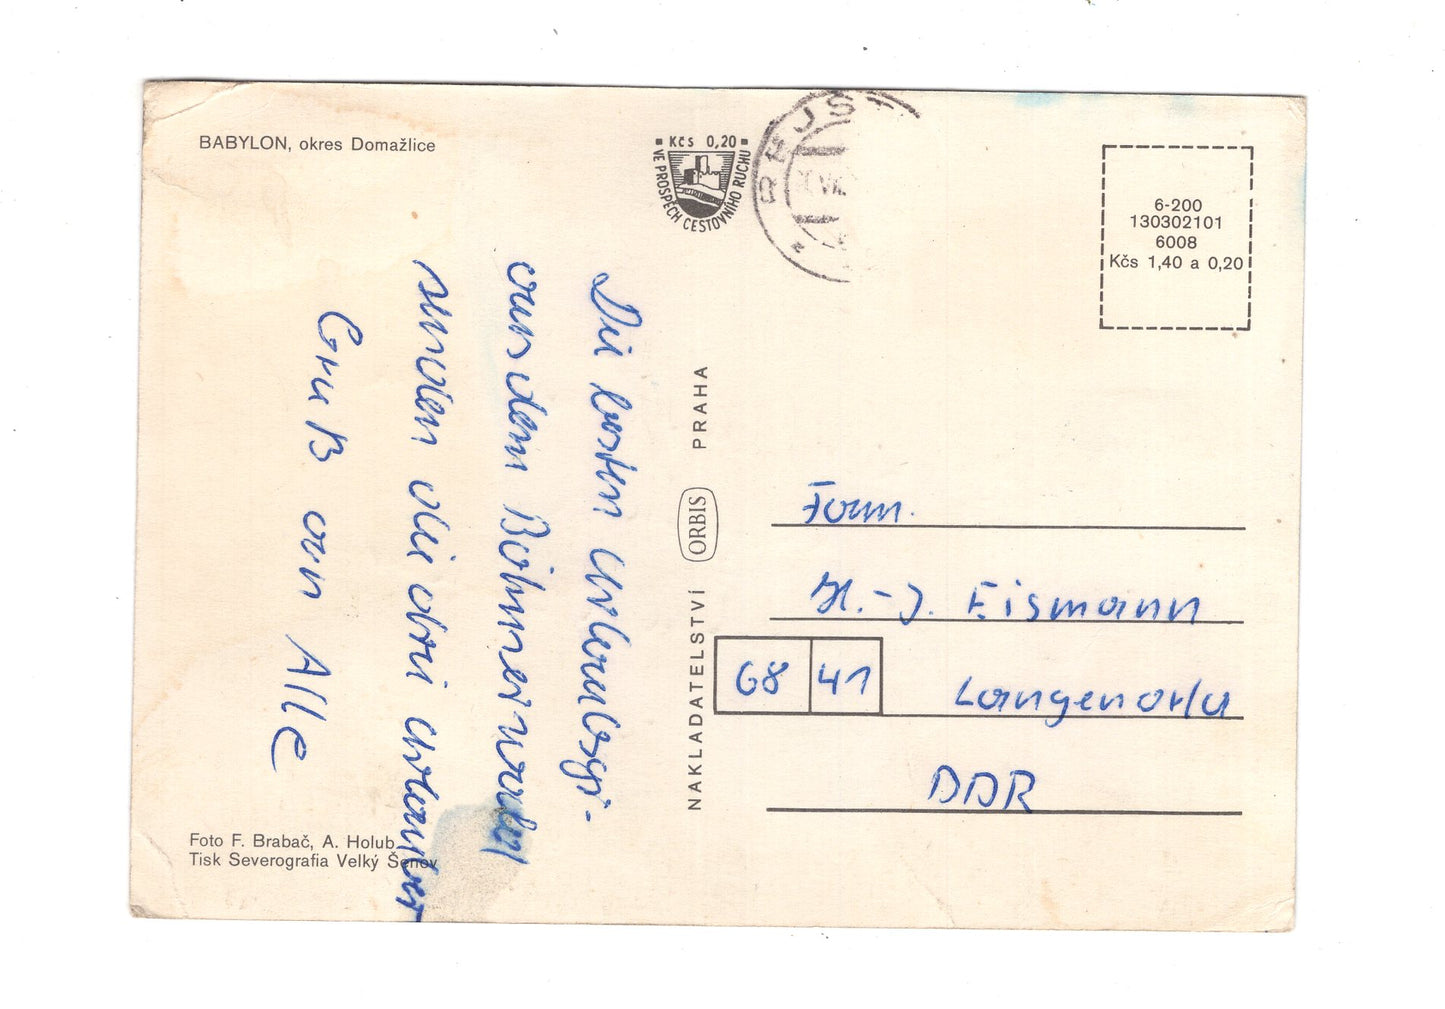 BABYLON, okres Domažlice
Kčs 0,20
VE PROSPĚCH CESTOVNÍHO RUCHU
6-200
130302101
6008
Kčs 1,40 a 0,20
Die besten Urlaubsgr-
aus dem Böhmerwald
senden die drei
Gruß an Alle
NAKLADATELSTVÍ ORBIS PRAHA
Fam.
H.-J. Eismann
68 41 Langenorla
DDR
Foto F. Brabač, A. Holub
Tisk Severografia Velký Šenov